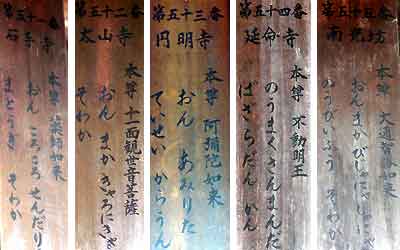 第五十一番
石手寺
本尊 薬師如来
おん ころころ せんだり
まとうぎ そわか
第五十二番
太山寺
本尊 十一面観世音菩薩
おん まか きゃろにきゃ
そわか
第五十三番
円明寺
本尊 阿弥陀如来
おん あみりた
ていせい からうん
第五十四番
延命寺
本尊 不動明王
のうまくさんまんだ
ばさらだん かん
第五十五番
南光坊
本尊 大通智勝如来
おんまかびじゃにゃ
のうびいふう そわか